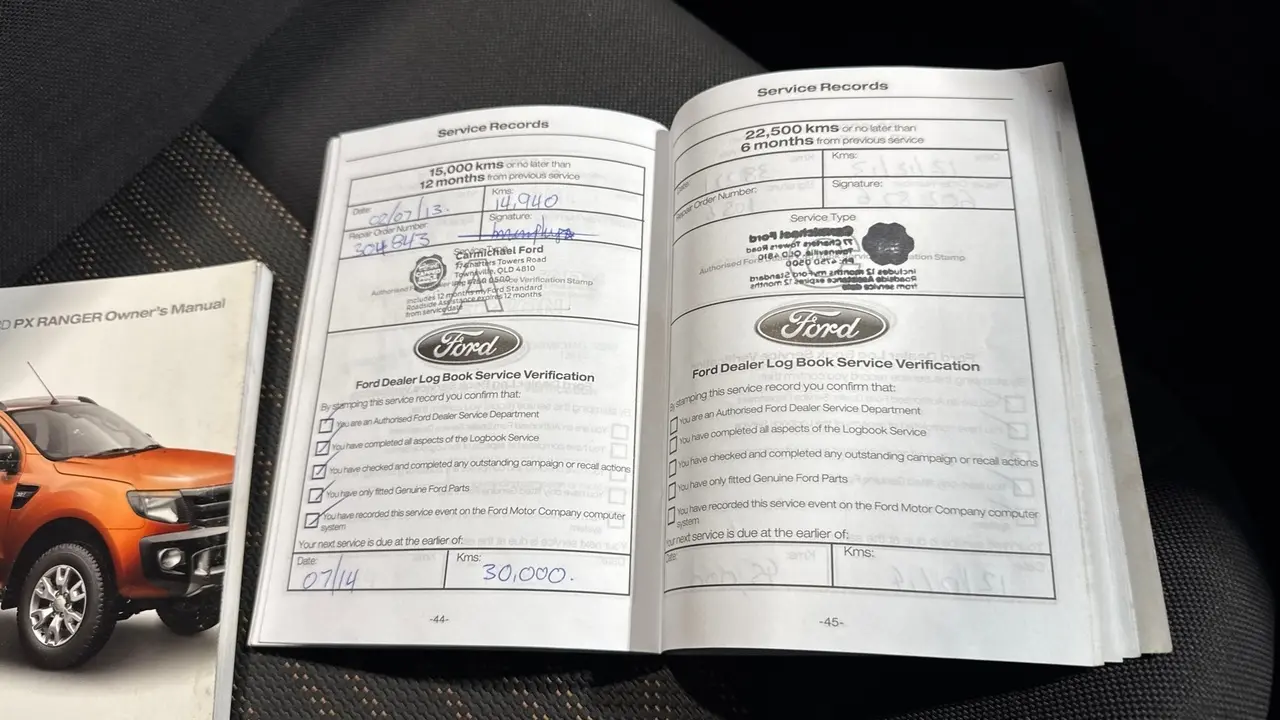 PX RANGER Owner's Manual
Service Records
15,000 kms or no later than
12 months from previous service
Date:
02/07/13.
Kms:
14,940
Repair Order Number
304843
Signature:
Service Type
Carmichael Ford
77 Charters Towers Road
Townsville, QLD 4810
Service Verification Stamp
Includes 12 months myFord Standard
Roadside Assistance expires 12 months
from service date
Ford
Ford Dealer Log Book Service Verification
By stamping this service record you confirm that:
You are an Authorised Ford Dealer Service Department
You have completed all aspects of the Logbook Service
You have checked and completed any outstanding campaign or recall actions
You have only fitted Genuine Ford Parts
You have recorded this service event on the Ford Motor Company computer
system
Your next service is due at the earlier of:
Date:
07/14
Kms:
30,000.
-44-
Service Records
22,500 kms or no later than
6 months from previous service
Date:
Kms:
Repair Order Number:
Signature:
Service Type
Authorised Ford Service Verification Stamp
Ford
Ford Dealer Log Book Service Verification
By stamping this service record you confirm that:
You are an Authorised Ford Dealer Service Department
You have completed all aspects of the Logbook Service
You have checked and completed any outstanding campaign or recall actions
You have only fitted Genuine Ford Parts
You have recorded this service event on the Ford Motor Company computer
system
Your next service is due at the earlier of:
Date:
Kms:
-45-